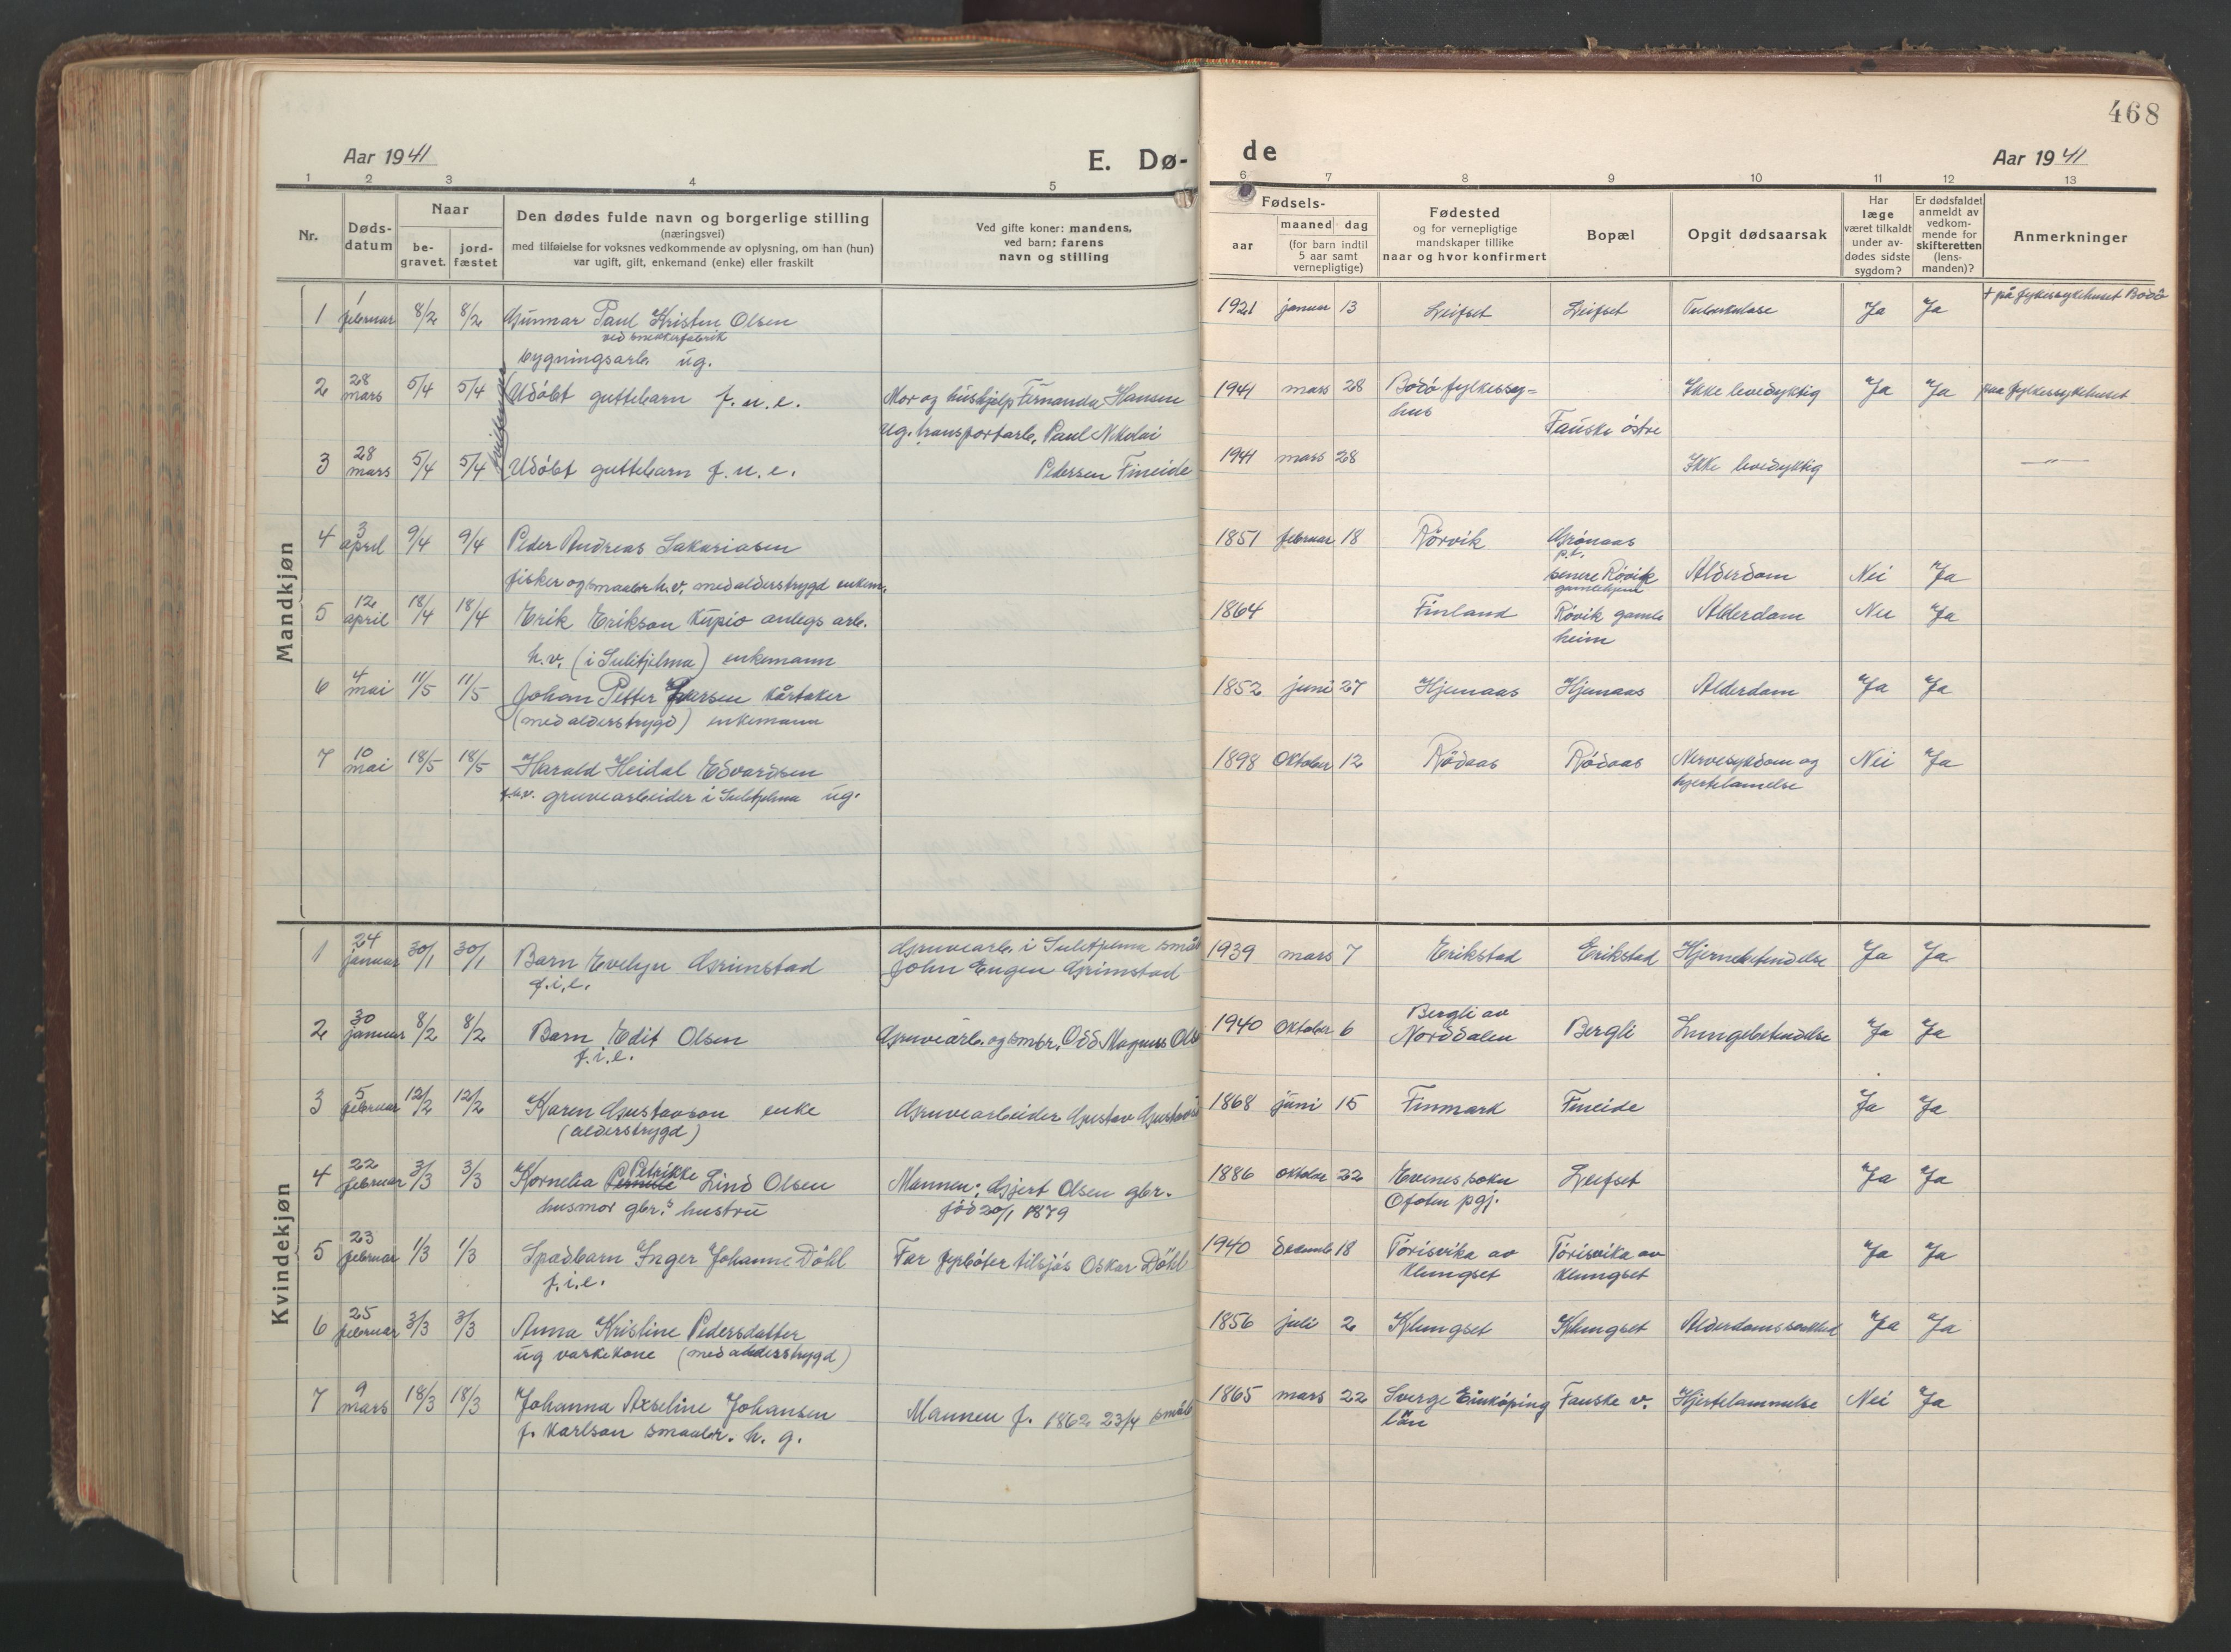 468
Aar 1941
E. Dø-
de
Aar 1941
1 2 3 4 5 6 7 8 9 10 11 12 13
Nr.
Døds-
datum
Naar
be-
gravet.
jord-
fæstet
Den dødes fulde navn og borgerlige stilling
(næringsvei)
med tilføielse for voksnes vedkommende av oplysning, om han (hun)
var ugift, gift, enkemand (enke) eller fraskilt
Ved gifte koner: mandens,
ved barn: farens
navn og stilling
Fødsels-
aar
maaned dag
(for barn indtil
5 aar samt
vernepligtige)
Fødested
og for vernepligtige
mandskaper tillike
naar og hvor konfirmert
Bopæl
Opgit dødsaarsak
Har
læge
været tilkaldt
under av-
dødes sidste
sygdom?
Er dødsfaldet
anmeldt av
vedkom-
mende for
skifteretten
(lens-
manden)?
Anmerkninger
Mandkjøn
1 1 februar 8/2 8/2 Gunnar Paul Kristen Olsen 1921 januar 13 Leifset Leifset Tuberkulose Ja Ja + på fylkessykehuset Bodö
ved snekkerfabrik
bygningsarb. ug.
2 28 mars 5/4 5/4 Udöbt guttebarn f. u. e. Mor og hushjelp Fernanda Hansen 1941 mars 28 Bodö fylkessy= Ikke levedyktig Ja Ja paa fylkessykehuset
hus
ug. transportarb. Paul Nikolai Fauske östre
3 28 mars 5/4 5/4 Udöbt guttebarn f. u. e. Pedersen Fineide 1941 mars 28 Ikke levedyktig — " —
4 3 april 9/4 9/4 Peder Andreas Sakariasen 1851 februar 18 Rörvik Grönaas
p.t.
fisker og smaabr. h.v. med alderstrygd enkem. senere Rövik Alderdom Nei Ja
gamlehjem
5 12 april 18/4 18/4 Erik Erikson Kupio anlegs arb. 1864 Finland Rövik gamle Alderdom Nei Ja
heim
h.v. (i Sulitjelma) enkemann
6 4 mai 11/5 11/5 Johan Petter Iversen kårtaker 1852 juni 27 Hjemaas Hjemaas Alderdom Ja Ja
(med alderstrygd) enkemann
7 10 mai 18/5 18/5 Harald Heidal Edvardsen 1898 Oktober 12 Rödaas Rödaas Nervesykdom og Nei Ja
hjertelamelse
f.h.v. gruvearbeider i Sulitjelma ug.
Kvindekjøn
1 24 januar 30/1 30/1 Barn Evelyn Grimstad Gruvearb. i Sulitjelma små 1939 mars 7 Erikstad Erikstad Hjernebetendelse Ja Ja
f.i.e. John Eugen Grimstad
2 30 januar 8/2 8/2 Barn Edit Olsen Gruvearb. og smbr. Odd Magnus Ols 1940 Oktober 6 Bergli av
Norddalen Bergli Lungebetendelse Ja Ja
f.i.e.
3 5 februar 12/2 12/2 Karen Gustavson enke Gruvearbeider Gustav Gustavs 1868 juni 15 Finmark Fineide Ja Ja
(alderstrygd)
4 22 februar 3/3 3/3 Kornelia Petrikke Lind Olsen Mannen: Gjert Olsen gbr. 1886 oktober 22 Evenes sokn Leifset Ja Ja
husmor gbr.s hustru föd 20/1 1879 Ofoten pgj.
5 23 februar 1/3 1/3 Spadbarn Inger Johanne Döhl Far fyrböter tilsjös Oskar Döhl 1940 desember 18 Törisvika av Törisvika av Ja Ja
f.i.e. Klungset Klungset
6 25 februar 3/3 3/3 Anna Kristine Pedersdatter 1856 juli 2 Klungset Klungset Ja Ja
ug vaskekone (med alderstrygd)
7 9 mars 18/3 18/3 Johanna Axseline Johansen Mannen f. 1862 23/4 småb 1865 mars 22 Sverge Fauske v. Hjertelammelse Nei Ja
f. Karlson smaabr. h. g. län